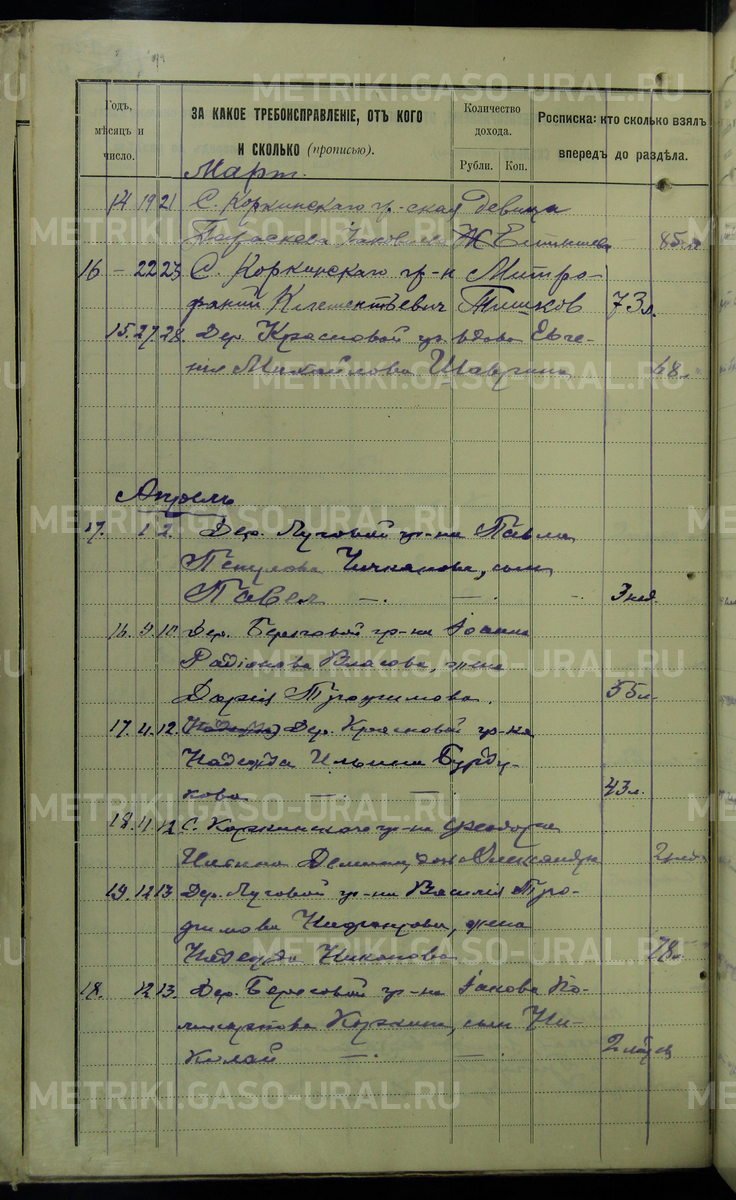 Годъ, мѣсяцъ и число.
ЗА КАКОЕ ТРЕБОИСПРАВЛЕНІЕ, ОТЪ КОГО И СКОЛЬКО (прописью).
Количество дохода.
Рубли. Коп.
Росписка: кто сколько взялъ впередъ до раздѣла.
Мартъ.
14 19 21 С. Коркинскаго гр-ская девица
85 л.
16 — 22 23 С. Коркинскаго гр-н Митро-
фаній Климентьевич Тишков 73 л.
15. 27. 28. Дер. Красновой гр. вдова Евге-
нія Михайлова Шаврина 68 л.
Апрѣль
17. 1 2. Дер. Луговой гр-на Павла
Чичканова, сын
Павел —. —. — 3 нед.
16. 9. 10 Дер. Береговой гр-на Іоанна
Радіонова Власова, жена
Дарія Трофимова. 55 л.
17. 11. 12. Дер. Красновой гр-ка
Надежда Ильина Бурду-
кова —. —. 43 л.
18. 11. 12 С. Коркинскаго гр-на Феодора
дочь Александра
19. 12 13 Дер. Луговой гр-на Василія Тро-
фимова жена
Надежда Никонова 78
18. 12 13. Дер. Береговой гр-на Іакова По-
ликарпова Коркина, сын Ни-
колай —. —.
METRIKI.GASO-URAL.RU